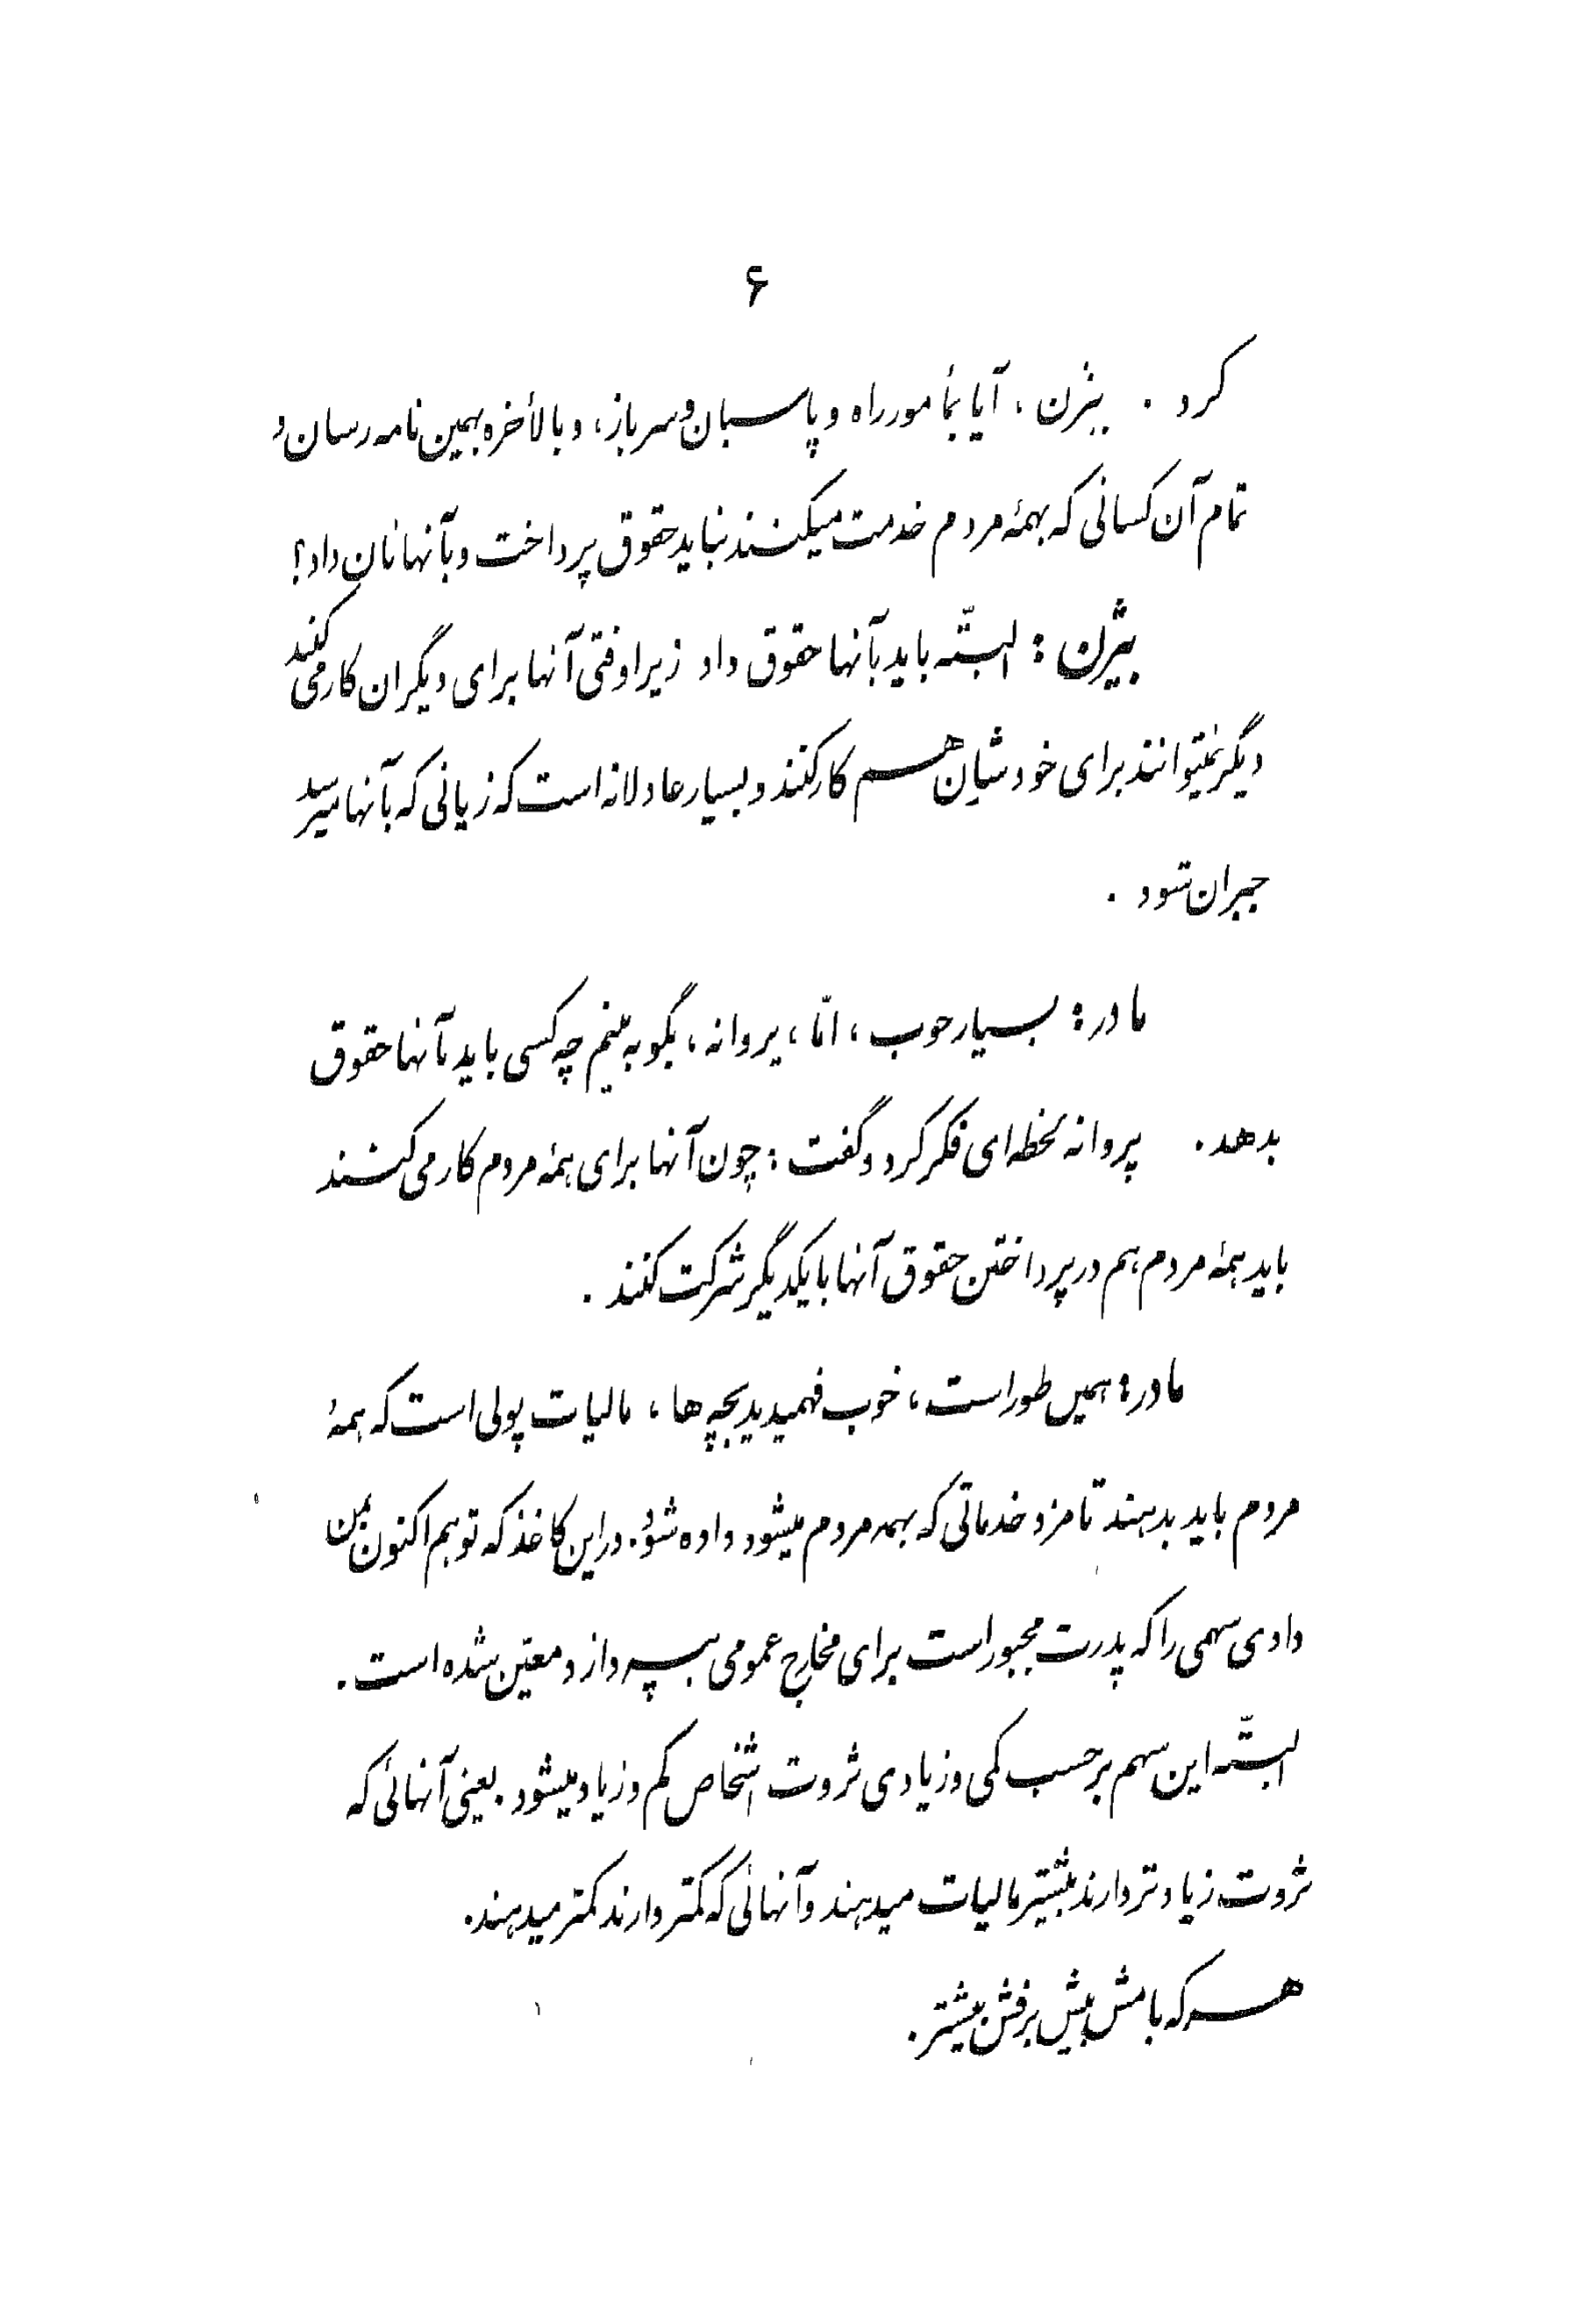 ۶
کرد . بیژن ، آیا بمأمور راه و پاسبان و سرباز ، و بالأخره بهمین نامه رسان و
تمام آن کسانی که بهمهٔ مردم خدمت میکنند نباید حقوق پرداخت و بآنها نان داد ؟
بیژن : البتّه باید بآنها حقوق داد زیرا وقتی آنها برای دیگران کار می کنند
دیگر نمیتوانند برای خودشان هم کار کنند و بسیار عادلانه است که زیانی که بآنها میرسد
جبران شود .
مادر : بسیار خوب ، امّا ، پروانه ، بگو به بینم چه کسی باید بآنها حقوق
بدهد . پروانه لحظه‌ای فکر کرد و گفت : چون آنها برای همهٔ مردم کار می کنند
باید همهٔ مردم هم در پرداختن حقوق آنها با یکدیگر شرکت کنند .
مادر : همین طور است ، خوب فهمیدید بچه ها ، مالیات پولی است که همهٔ
مردم باید بدهند تا مزد خدماتی که بهمه مردم میشود داده شود . در این کاغذ که تو هم اکنون بمن
دادی سهمی را که پدرت مجبور است برای مخارج عمومی بپردازد معیّن شده است .
البتّه این سهم بر حسب کمی و زیادی ثروت اشخاص کم و زیاد میشود . یعنی آنهائی که
ثروت زیادتر دارند بیشتر مالیات میدهند و آنهائی که کمتر دارند کمتر میدهند .
هر که بامش بیش برفش بیشتر .